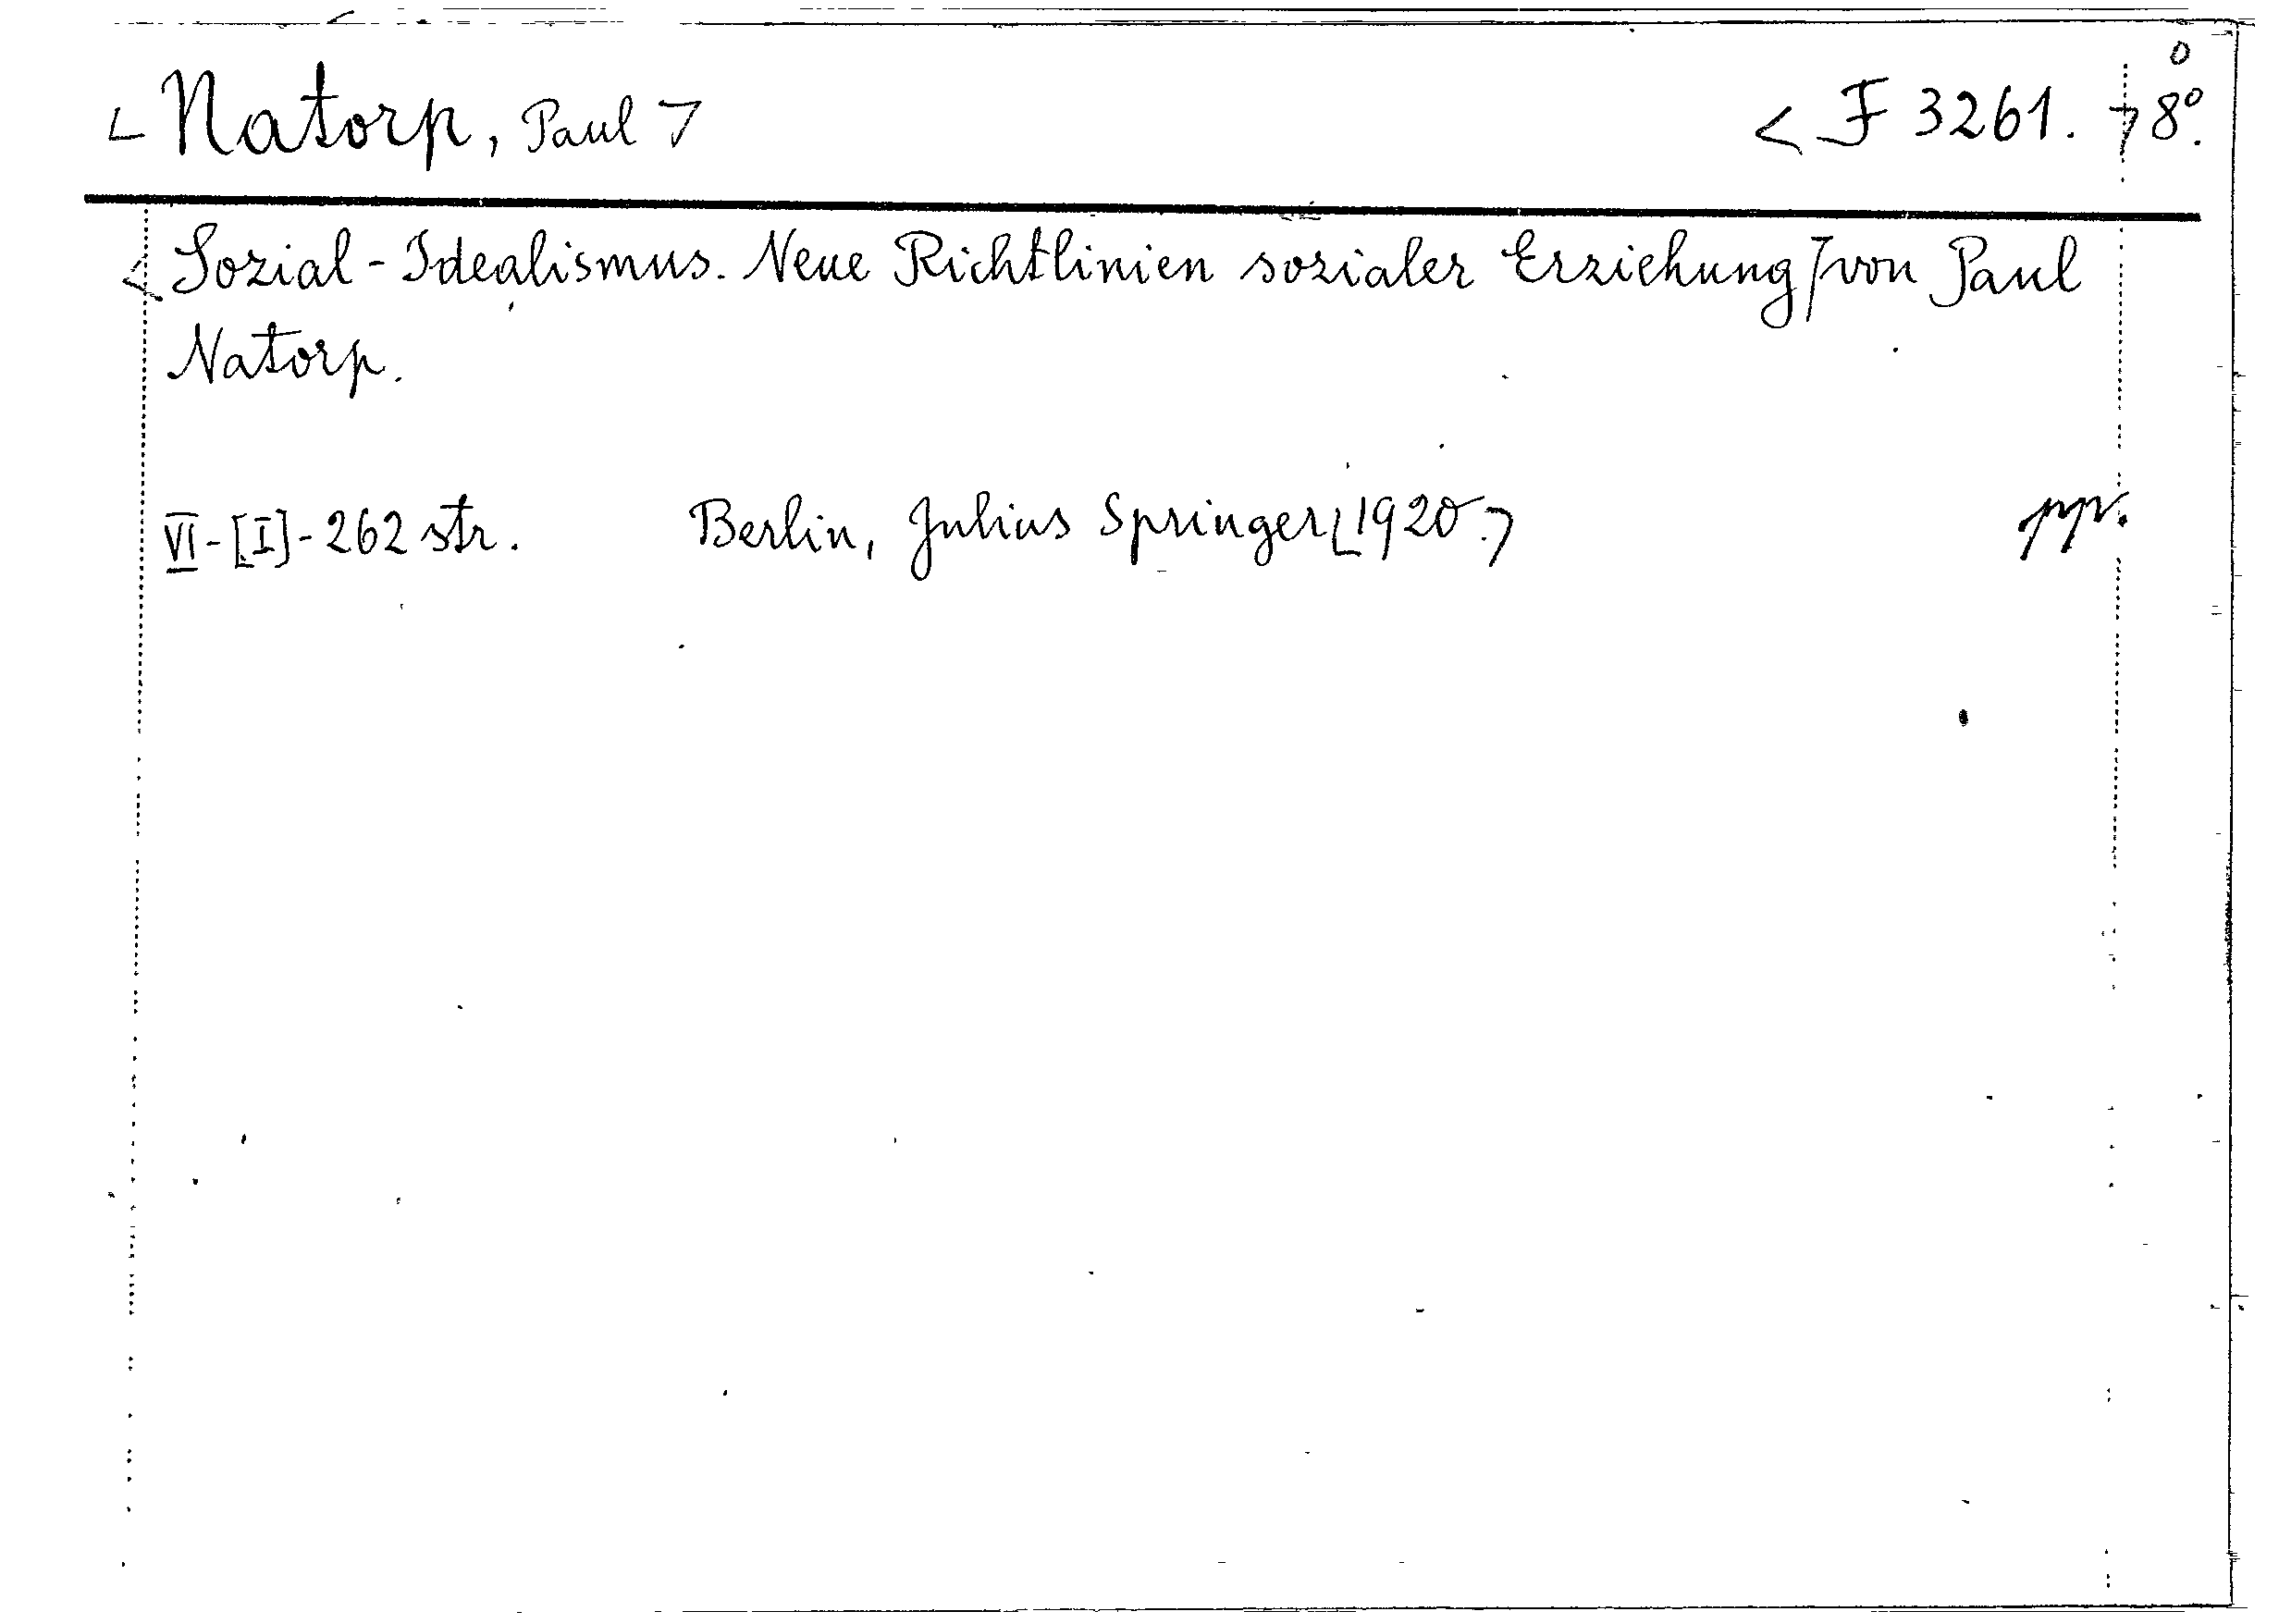 < Natorp, Paul > < F 3261. > 8°.
< Sozial-Idealismus. Neue Richtlinien sozialer Erziehung > von Paul
Natorp.
VI-[I]-262 str. Berlin, Julius Springer < 1920. > pp.